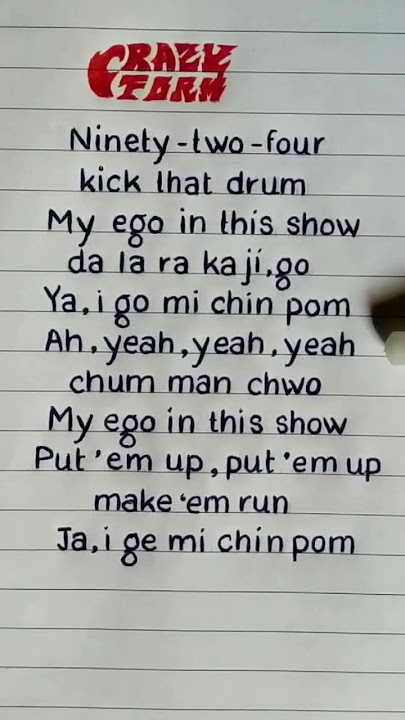 CRAZY
FORM
Ninety-two-four
kick that drum
My ego in this show
da la ra ka ji,go
Ya,i go mi chin pom
Ah,yeah,yeah,yeah
chum man chwo
My ego in this show
Put 'em up,put 'em up
make 'em run
Ja,i ge mi chin pom